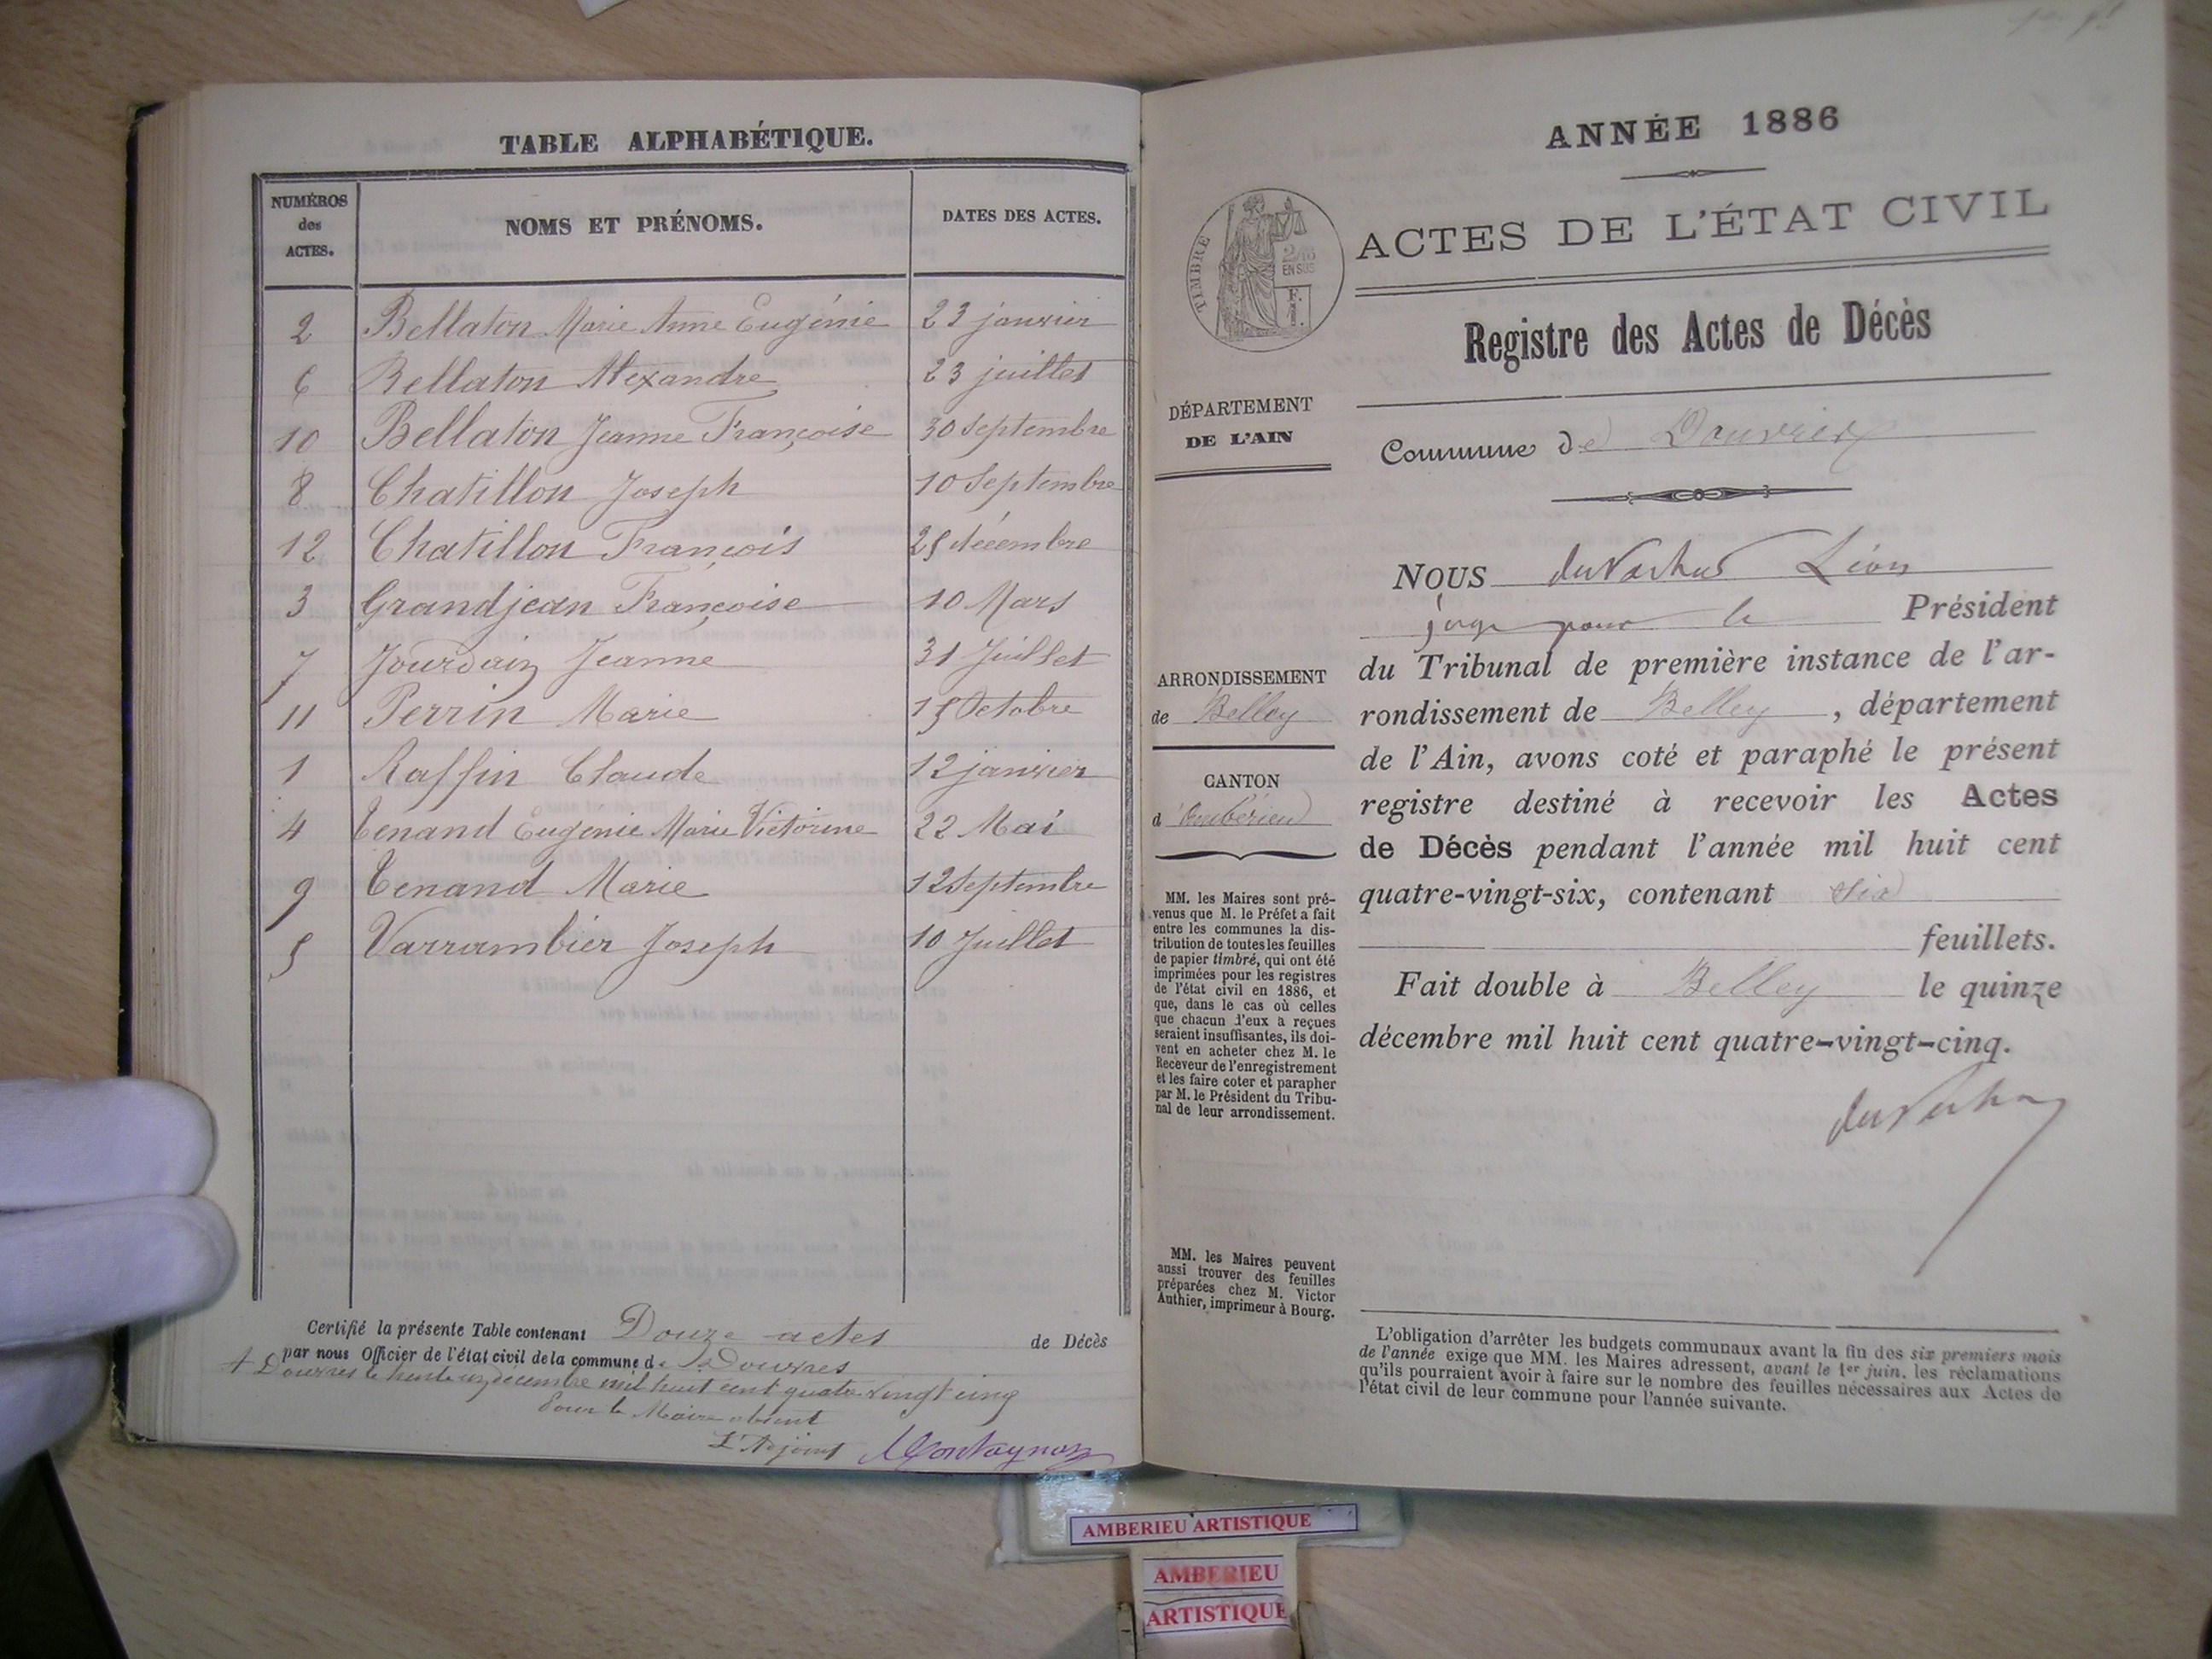 TABLE ALPHABÉTIQUE.
NUMÉROS
des
ACTES.
NOMS ET PRÉNOMS.
DATES DES ACTES.
2 Bellaton Marie Anne Eugénie 23 janvier
6 Bellaton Alexandre 23 juillet
10 Bellaton Jeanne Françoise 30 Septembre
8 Chatillon Joseph 10 Septembre
12 Chatillon François 25 décembre
3 Grandjean Françoise 10 Mars
7 Jourdain Jeanne 31 Juillet
11 Perrin Marie 15 Octobre
1 Raffin Claude 12 janvier
4 Tenand Eugenie Marie Victorine 22 Mai
9 Tenand Marie 12 Septembre
5 Varrambier Joseph 10 Juillet
Certifié la présente Table contenant Douze actes de Décès
par nous Officier de l'état civil de la commune de Douvres
A Douvres le trente un décembre mil huit cent quatre vingt cinq
Pour le Maire absent
L'Adjoint Montagnon
ANNÉE 1886
ACTES DE L'ÉTAT CIVIL
TIMBRE
2/10
EN SUS
F.
1.
Registre des Actes de Décès
DÉPARTEMENT
DE L'AIN
Commune de Douvres
NOUS Léon
juge pour le Président
du Tribunal de première instance de l'ar-
rondissement de Belley, département
de l'Ain, avons coté et paraphé le présent
registre destiné à recevoir les Actes
de Décès pendant l'année mil huit cent
quatre-vingt-six, contenant six
feuillets.
Fait double à Belley le quinze
décembre mil huit cent quatre-vingt-cinq.
ARRONDISSEMENT
de Belley
CANTON
d'Ambérieu
MM. les Maires sont pré-
venus que M. le Préfet a fait
entre les communes la dis-
tribution de toutes les feuilles
de papier timbré, qui ont été
imprimées pour les registres
de l'état civil en 1886, et
que, dans le cas où celles
que chacun d'eux a reçues
seraient insuffisantes, ils doi-
vent en acheter chez M. le
Receveur de l'enregistrement
et les faire coter et parapher
par M. le Président du Tribu-
nal de leur arrondissement.
MM. les Maires peuvent
aussi trouver des feuilles
préparées chez M. Victor
Authier, imprimeur à Bourg.
L'obligation d'arrêter les budgets communaux avant la fin des six premiers mois
de l'année exige que MM. les Maires adressent, avant le 1er juin, les réclamations
qu'ils pourraient avoir à faire sur le nombre des feuilles nécessaires aux Actes de
l'état civil de leur commune pour l'année suivante.
AMBERIEU ARTISTIQUE
AMBERIEU
ARTISTIQUE